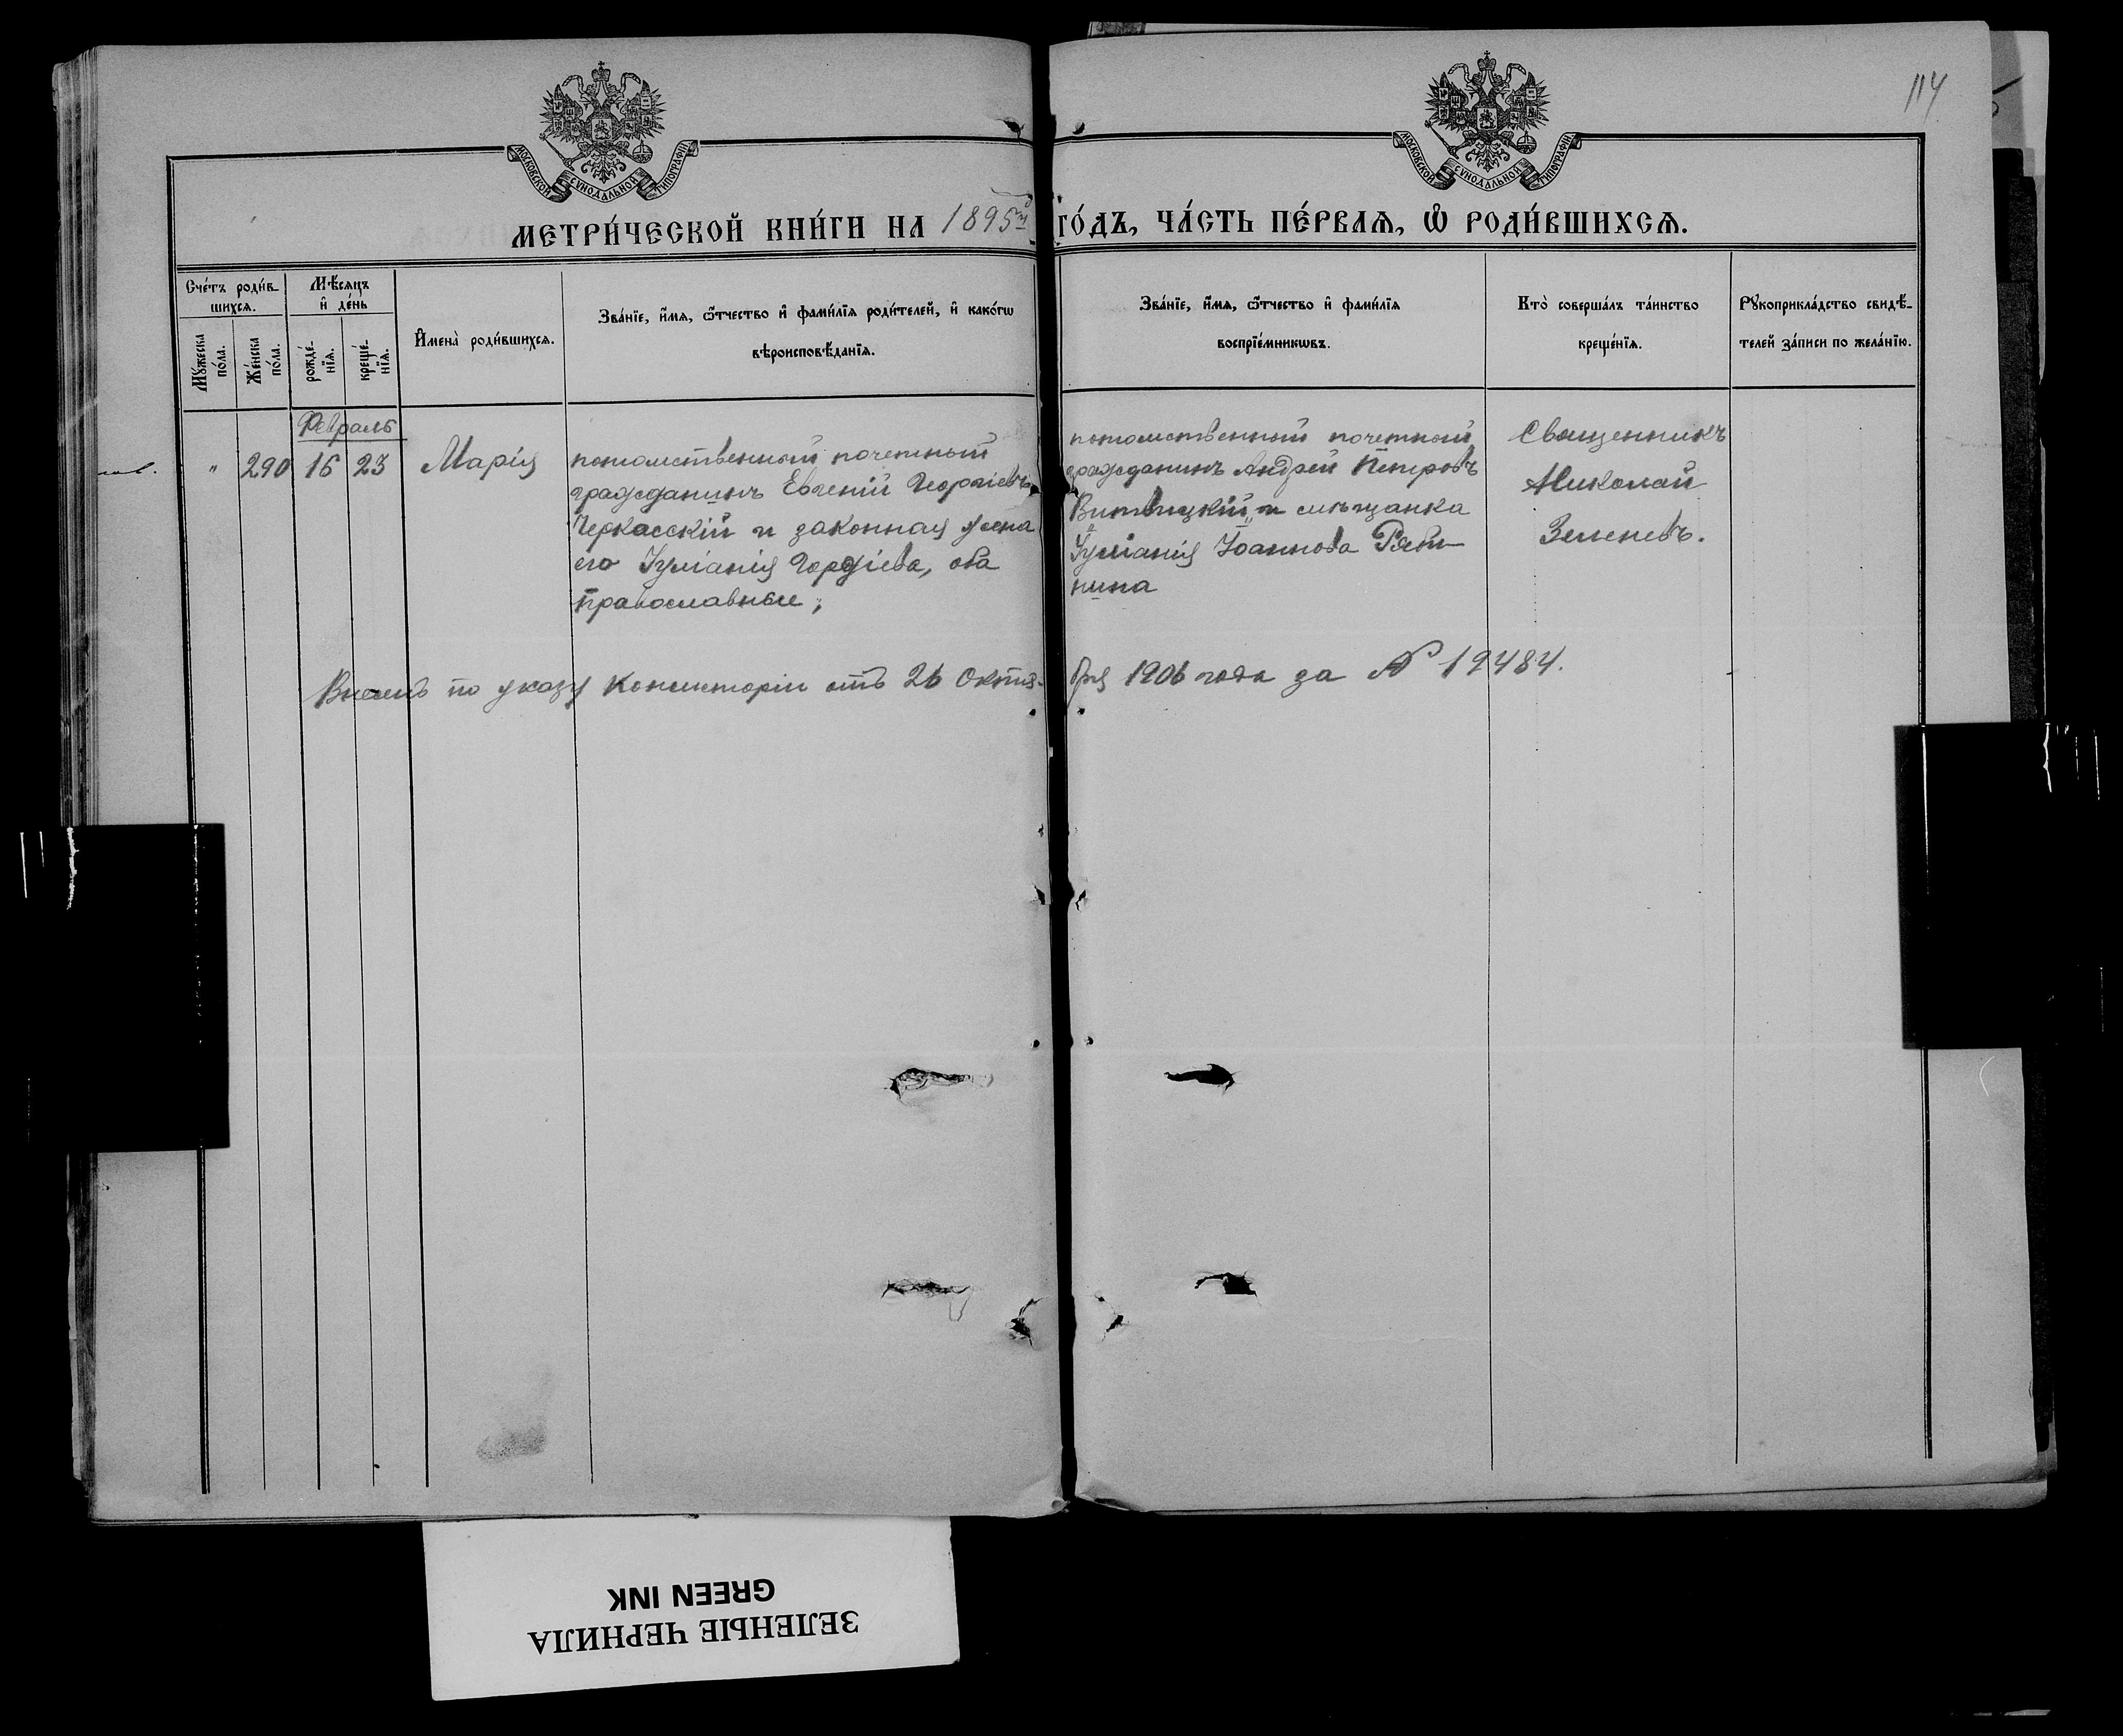 114
МОСКОВСКОЙ СУНОДАЛЬНОЙ ТИПОГРАФІИ
МОСКОВСКОЙ СУНОДАЛЬНОЙ ТИПОГРАФІИ
МЕТРИ́ЧЕСКОЙ КНИ́ГИ НА 1895й ГО́ДЪ, ЧА́СТЬ ПЕ́РВАѦ, Ѡ҆ РОДИ́ВШИХСѦ.
Сче́тъ роди́в-
шихсѧ.
Мꙋ́жеска
по́ла.
Же́нска
по́ла.
Мѣ́сѧцъ
и҆ де́нь
рожде́-
нїѧ.
креще́-
нїѧ.
И҆мена̀ роди́вшихсѧ.
Зва́нїе, и҆́мѧ, ѻ҆́тчество и҆ фами́лїѧ роди́телей, и҆ како́гѡ
вѣроисповѣ́данїѧ.
Зва́нїе, и҆́мѧ, ѻ҆́тчество и҆ фами́лїѧ
воспрїе́мникѡвъ.
Кто̀ соверша́лъ та́инство
креще́нїѧ.
Рꙋкоприкла́дство свидѣ́-
телей за́писи по жела́нїю.
Февраль
" 290 16 23 Марія
потомственный почетный
гражданинъ Евгеній Георгіевъ
Черкасскій и законная жена
его Іуліанія Гордіева, оба
православные;
потомственный почетный
гражданинъ Андрей Петровъ
Витвицкій и мѣщанка
Іуліанія Іоаннова Ряби-
нина
Священникъ
Николай
Зеленевъ.
по указу Консисторіи отъ 26 Октя-
бря 1906 года за № 19484.
ЗЕЛЕНЫЕ ЧЕРНИЛА
GREEN INK